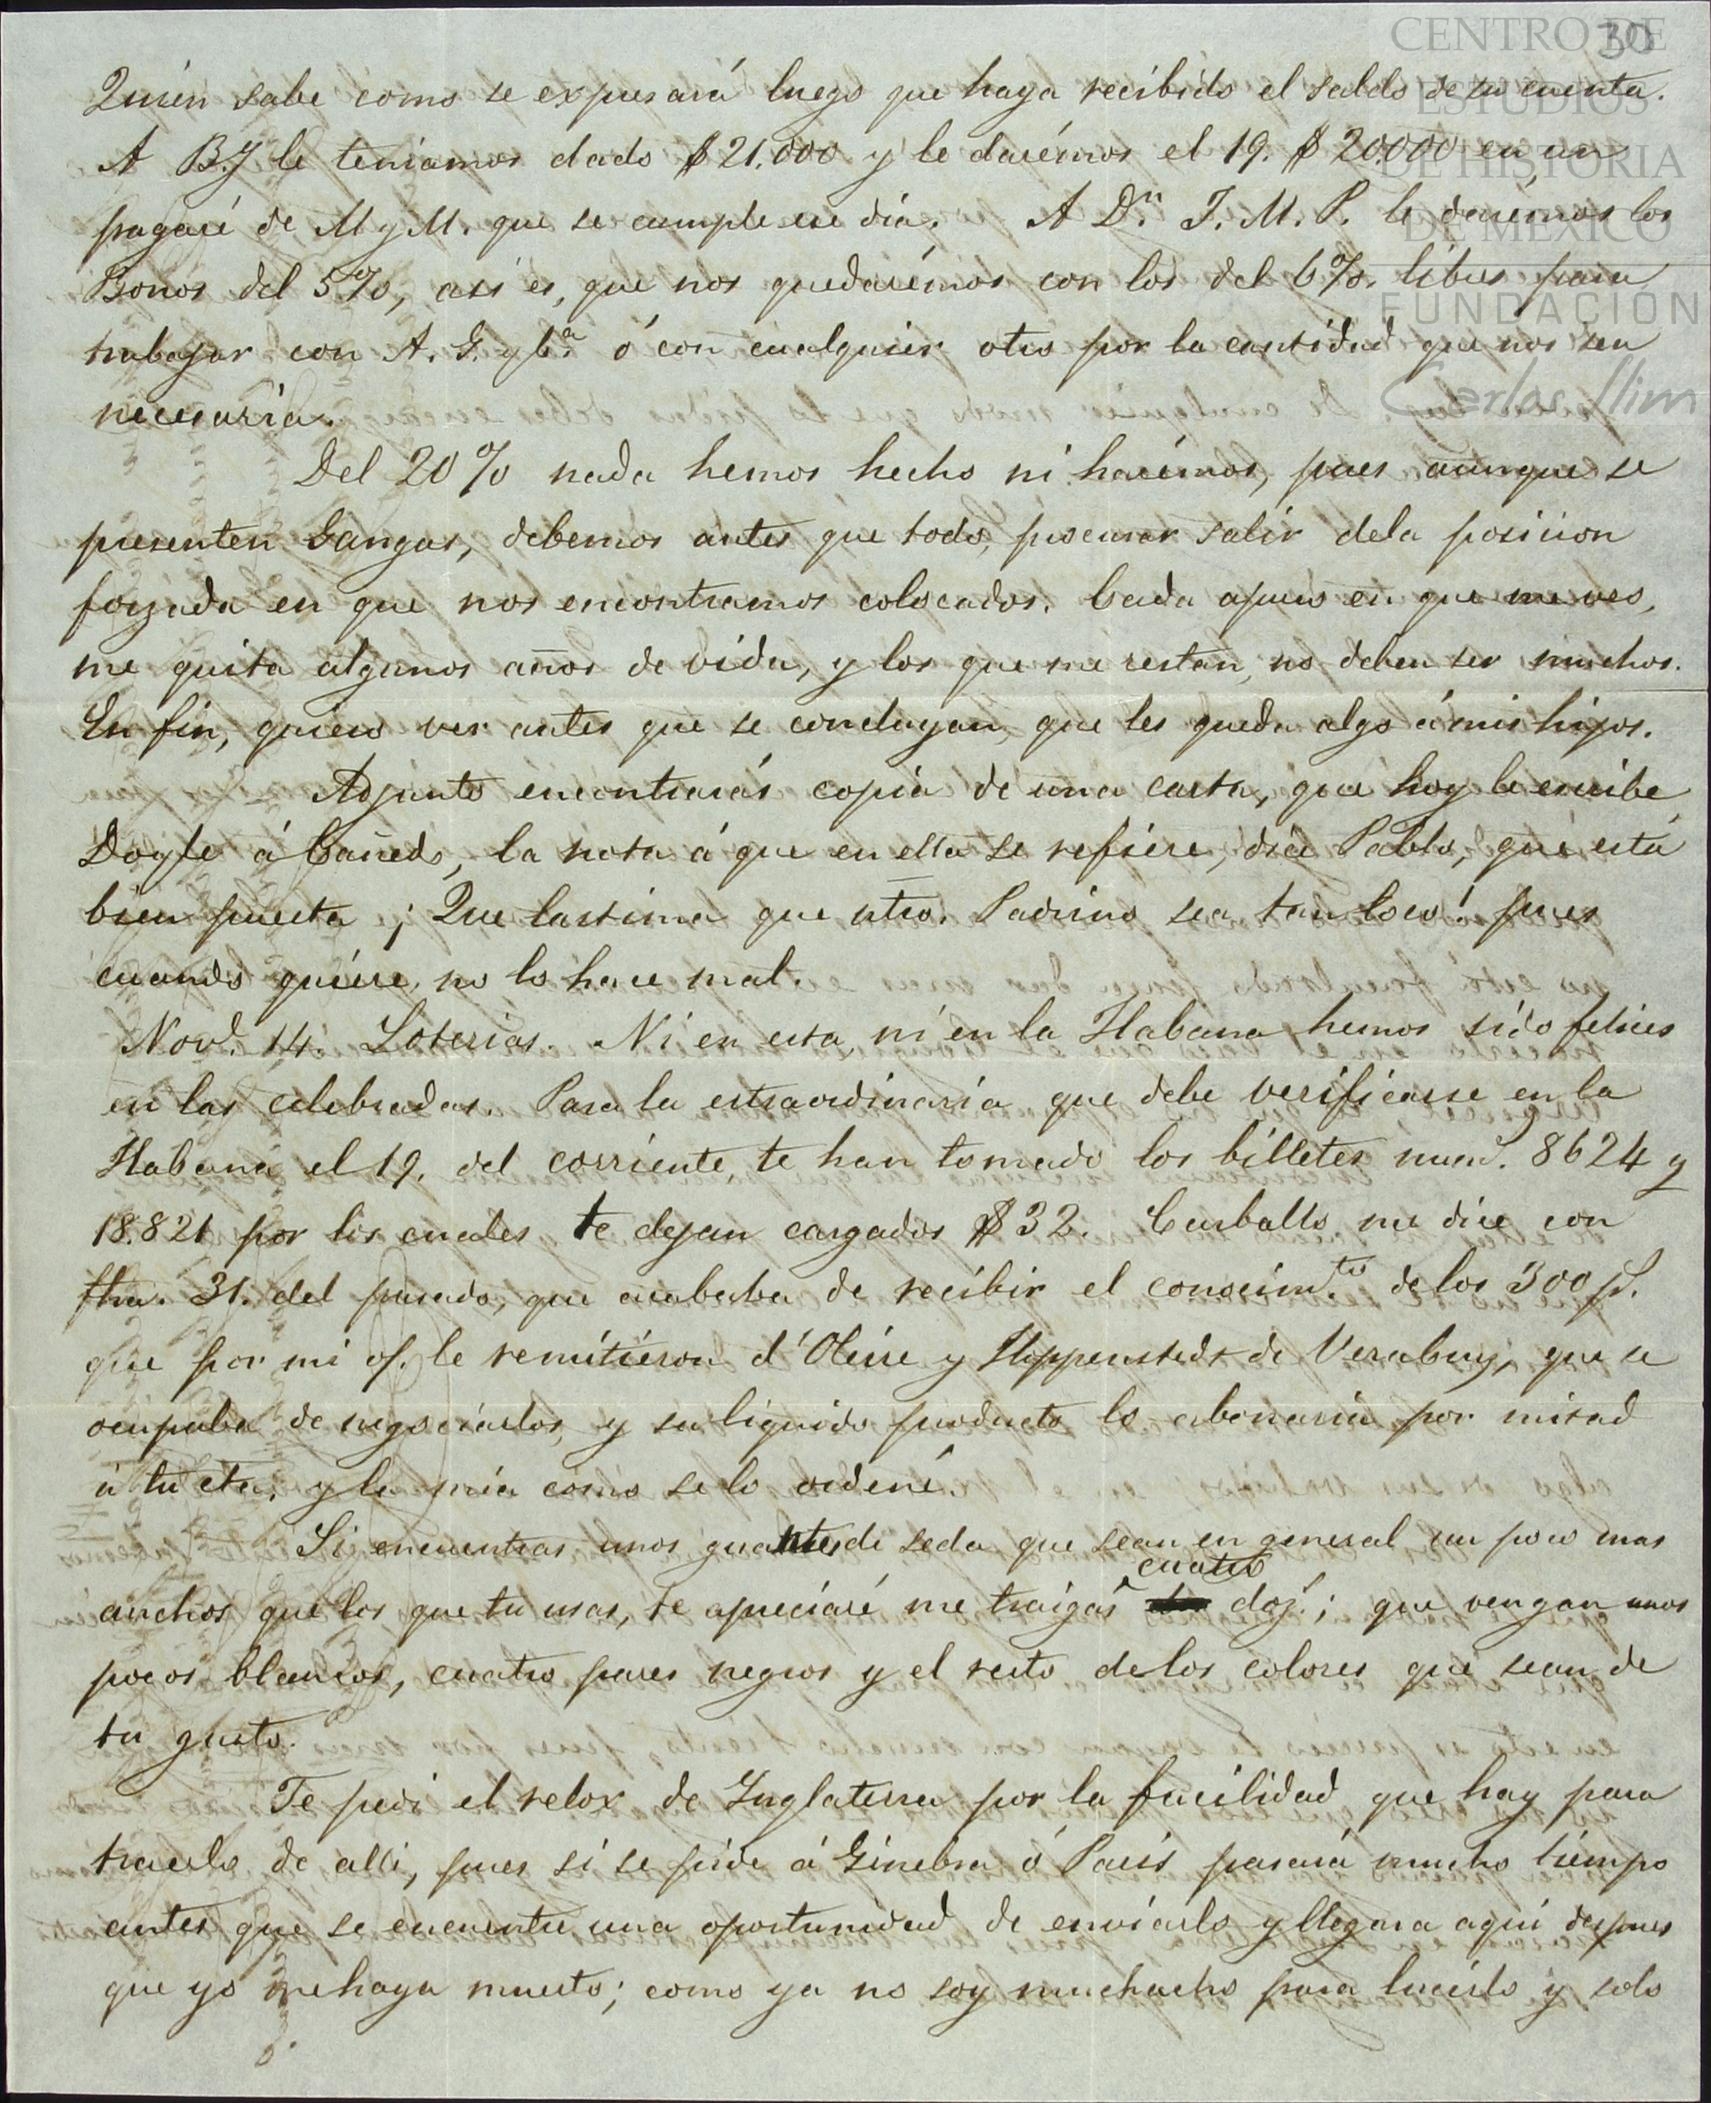 30
CENTRO DE
ESTUDIOS
DE HISTORIA
DE MEXICO
FUNDACIÓN
Carlos Slim
Quien sabe como se expresará luego que haya recibido el saldo de su cuenta.
A B.J le teniamos dado $21.000 y le darémos el 19. $20.000 en un
pagaré de M y M. que se cumple ese dia. A Dn. J. M. P. le darémos los
Bonos del 5%, asi es, que nos quedarémos con los del 6%. libres para
trabajar con A. G. y Ca. ó con cualquier otro por la cantidad que nos sea
necesaria.
Del 20% nada hemos hecho ni harémos, pues aunque se
presenten Gangas, debemos antes que todo, procurar salir dela posicion
forzada en que nos encontramos colocados. Cada apuro en que me veo,
me quita algunos años de vida, y los que me restan, no deben ser muchos.
En fin, quiero ver antes que se concluyan, que les queda algo á mis hijos.
Adjunto encontrarás copia de una carta, que hoy le escribe
Doyle á Cañedo, la nota á que en ella se refiere, dice Pablo, que está
bien puesta ¡ Que lastima que ntro. Padrino sea tan loco! pues
cuando quiere, no lo hace mal.
Novd. 14. Loterias. Ni en esta, ni en la Habana hemos sido felices
en las celebradas. Para la estraordinaria que debe verificarse en la
Habana el 19. del corriente, te han tomado los billetes numd. 8624 y
18.821 por los cuales te dejan cargados $32. Carballo me dice con
fha. 31. del pasado, que acababa de recibir el conocimto. de los 300 p.
que por mi of. le remitieron d'Oleire y Hoppenstedt de Veracruz, que se
ocupaba de negociarlos, y su liquido producto lo abonaria por mitad
á tu cta. y la mia como se lo ordené.
Si encuentras unos guantes de seda que sean en general un poco mas
anchos que los que tu usas, te apreciaré me traigas cuatro doz.; que vengan unos
pocos blancos, cuatro pares negros y el resto de los colores que sean de
tu gusto.
Te pedi el relox de Inglaterra por la facilidad que hay para
traerlo de alli, pues si se pide á Ginebra ó Paris pasará mucho tiempo
antes que se encuentre una oportunidad de enviarlo y llegara aqui despues
que yo me haya muerto; como ya no soy muchacho para lucirlo y solo